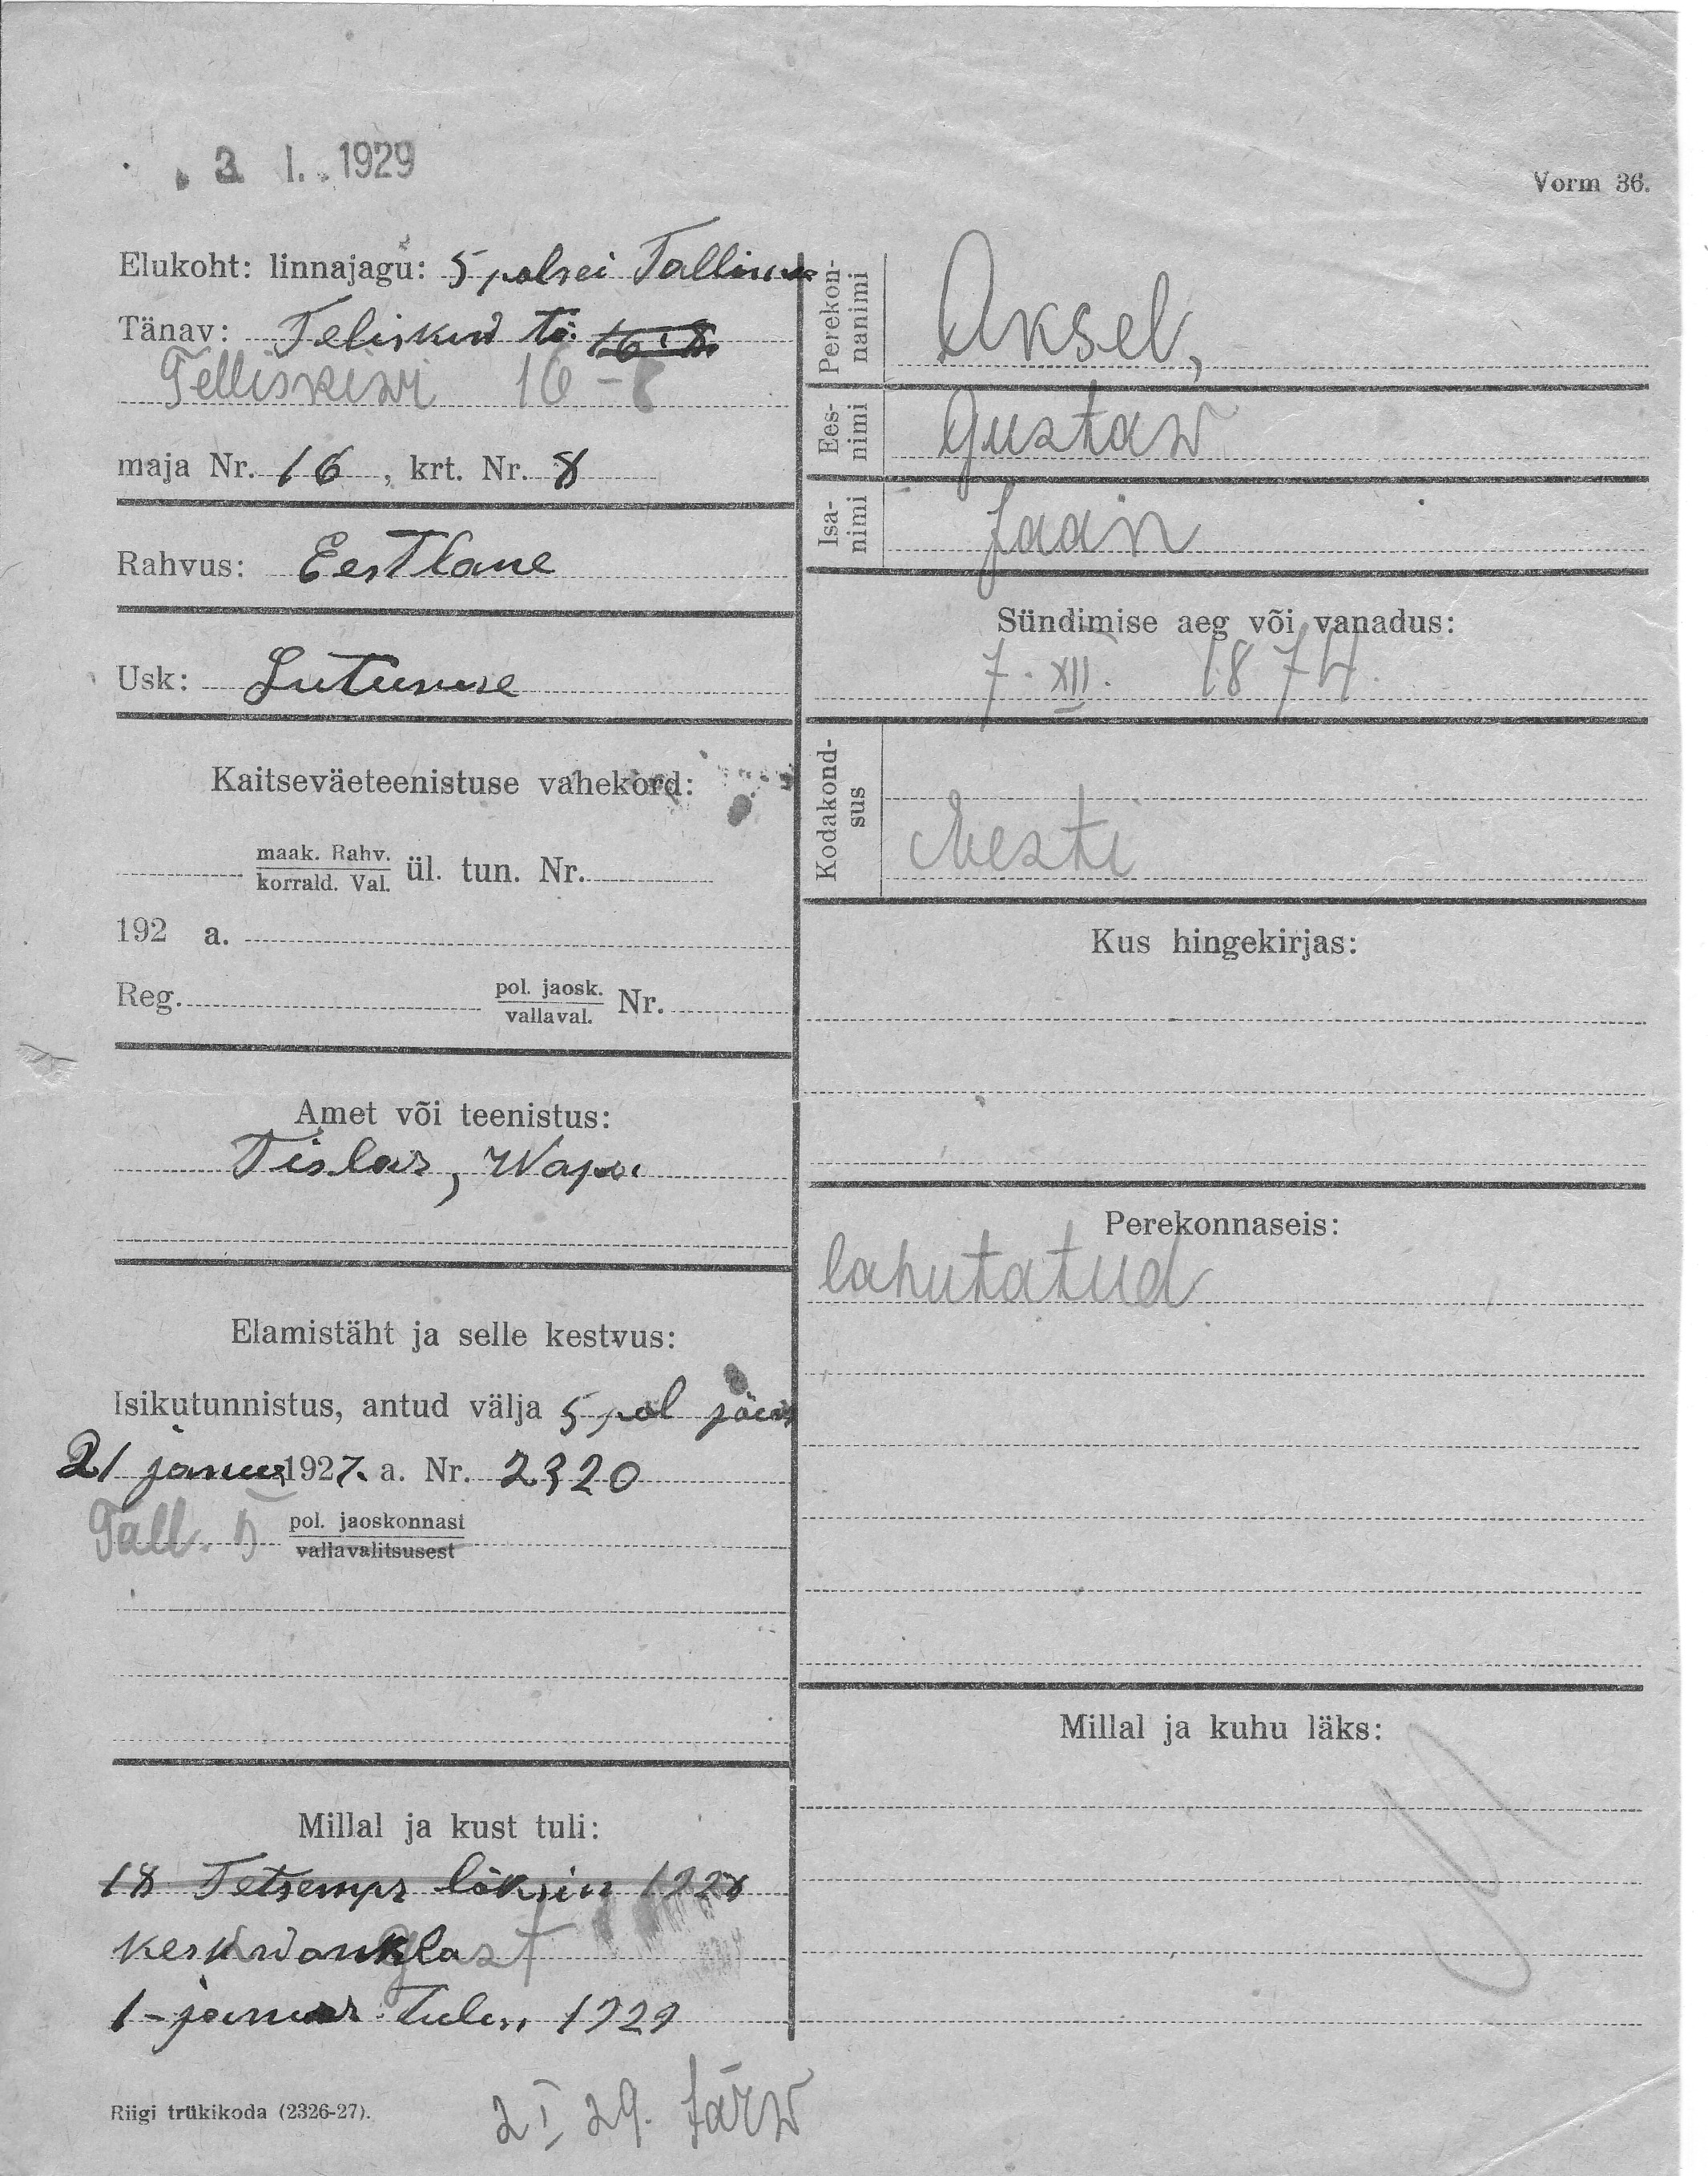 3. I. 1929
Vorm 36.
Elukoht: linnajagu: 5 polsei Tallinas
Tänav: Teliskiwi tö. 16 : 8.
Telliskiwi 16 - 8
maja Nr. 16, krt. Nr. 8
Rahvus: Eestlane
Usk: Luteruse
Kaitseväeteenistuse vahekord:
maak. Rahv.
korrald. Val. ül. tun. Nr.
192 a.
Reg. pol. jaosk.
vallaval. Nr.
Amet või teenistus:
Tislar, Wapr.
Elamistäht ja selle kestvus:
Isikutunnistus, antud välja 5 pol jäos
21 januar 1927. a. Nr. 2320
Tall. V pol. jaoskonnast
vallavalitsusest
Millal ja kust tuli:
18 Tetsempr läksin 1928
keskwanglast
1 - januar Tulin 1929
Riigi trükikoda (2326-27).
2 I 29. Järw
Perekon-
nanimi Aksel,
Ees-
nimi Gustaw
Isa-
nimi Jaan
Sündimise aeg või vanadus:
7. XII. 1874.
Kodakond-
sus Eesti
Kus hingekirjas:
Perekonnaseis:
lahutatud
Millal ja kuhu läks: